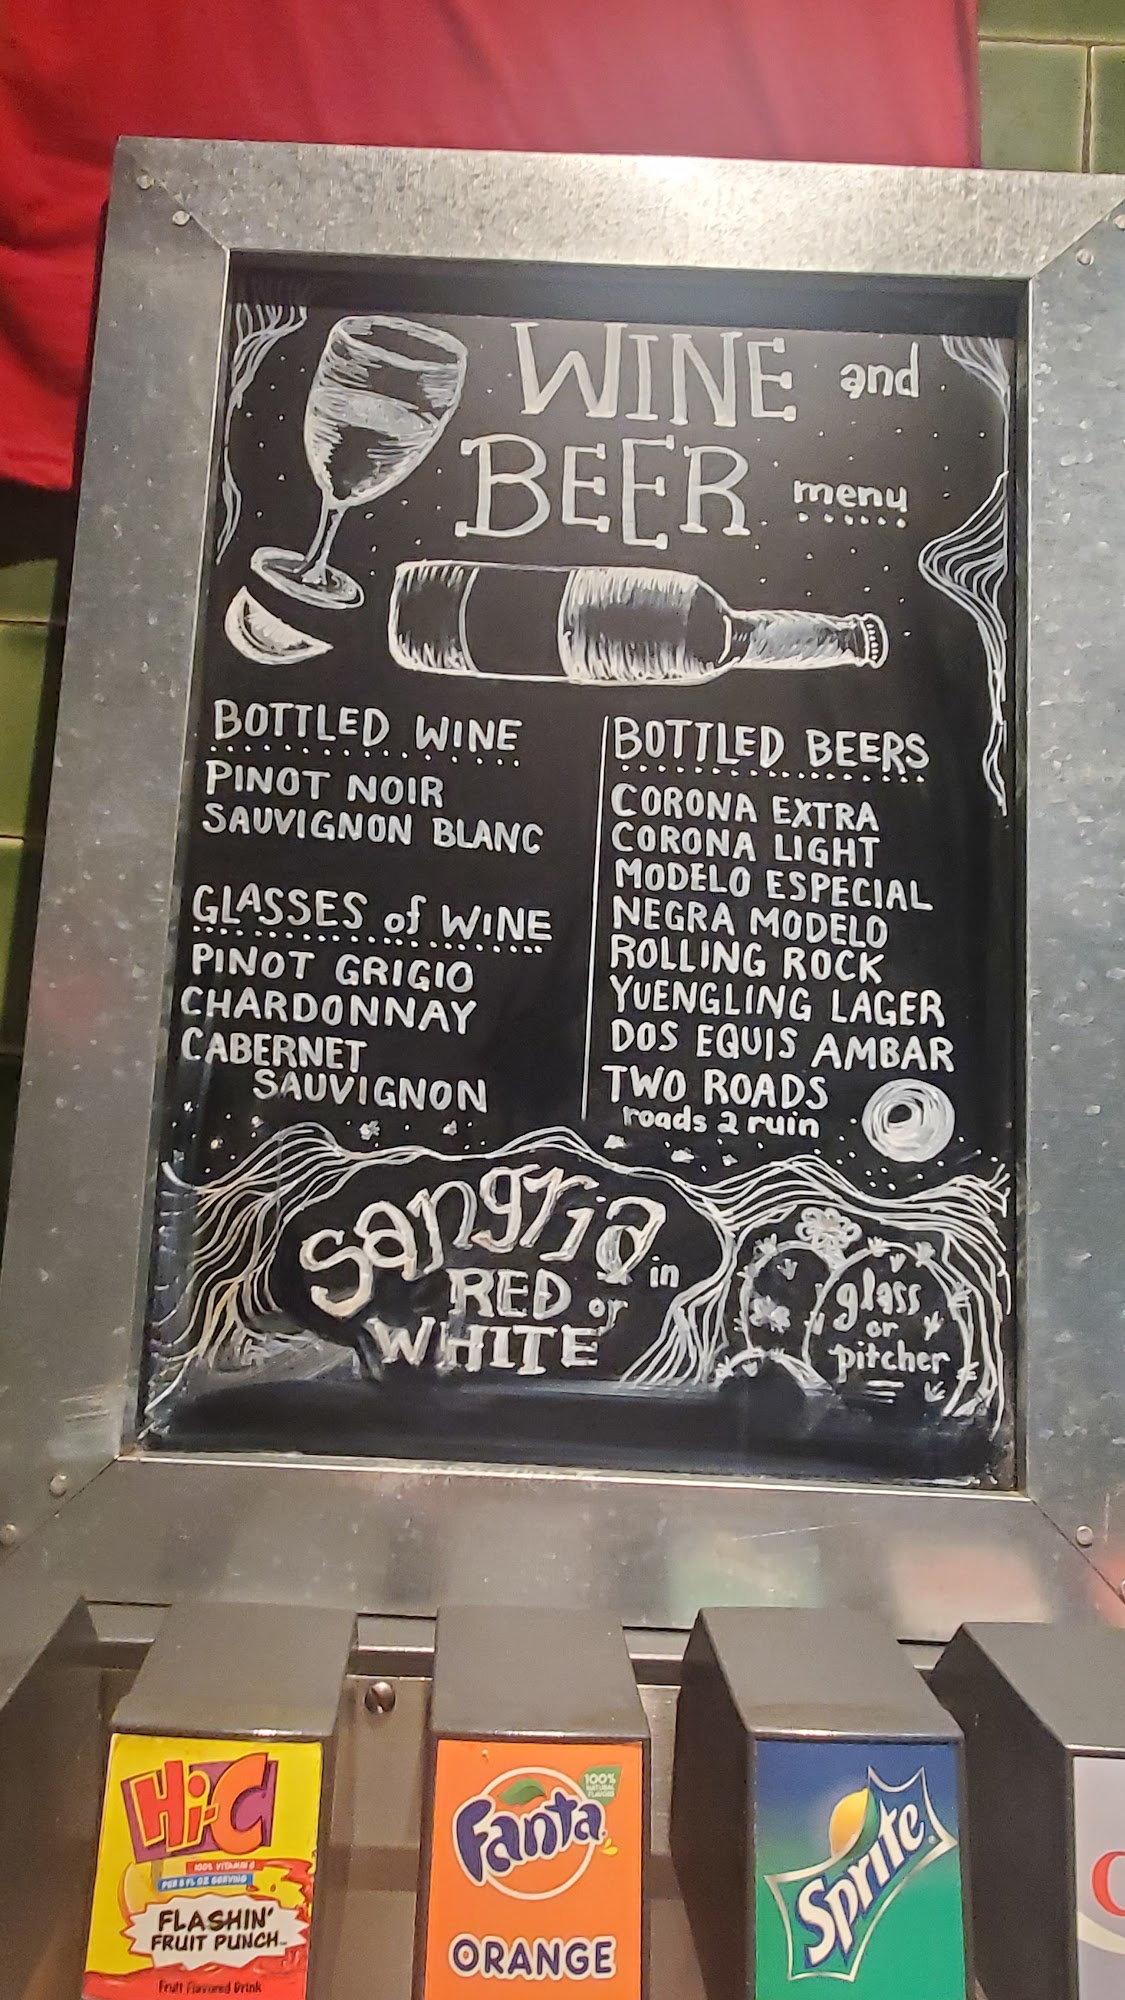 WINE and
BEER menu
BOTTLED WINE
PINOT NOIR
SAUVIGNON BLANC
GLASSES of WINE
PINOT GRIGIO
CHARDONNAY
CABERNET
SAUVIGNON
BOTTLED BEERS
CORONA EXTRA
CORONA LIGHT
MODELO ESPECIAL
NEGRA MODELO
ROLLING ROCK
YUENGLING LAGER
DOS EQUIS AMBAR
TWO ROADS
roads 2 ruin
sangria in
RED or
WHITE
glass
or
pitcher
Hi-C
100% VITAMIN C
PER 8 FL OZ SERVING
FLASHIN'
FRUIT PUNCH
Fruit Flavored Drink
Fanta
100%
NATURAL
FLAVORS
ORANGE
Sprite